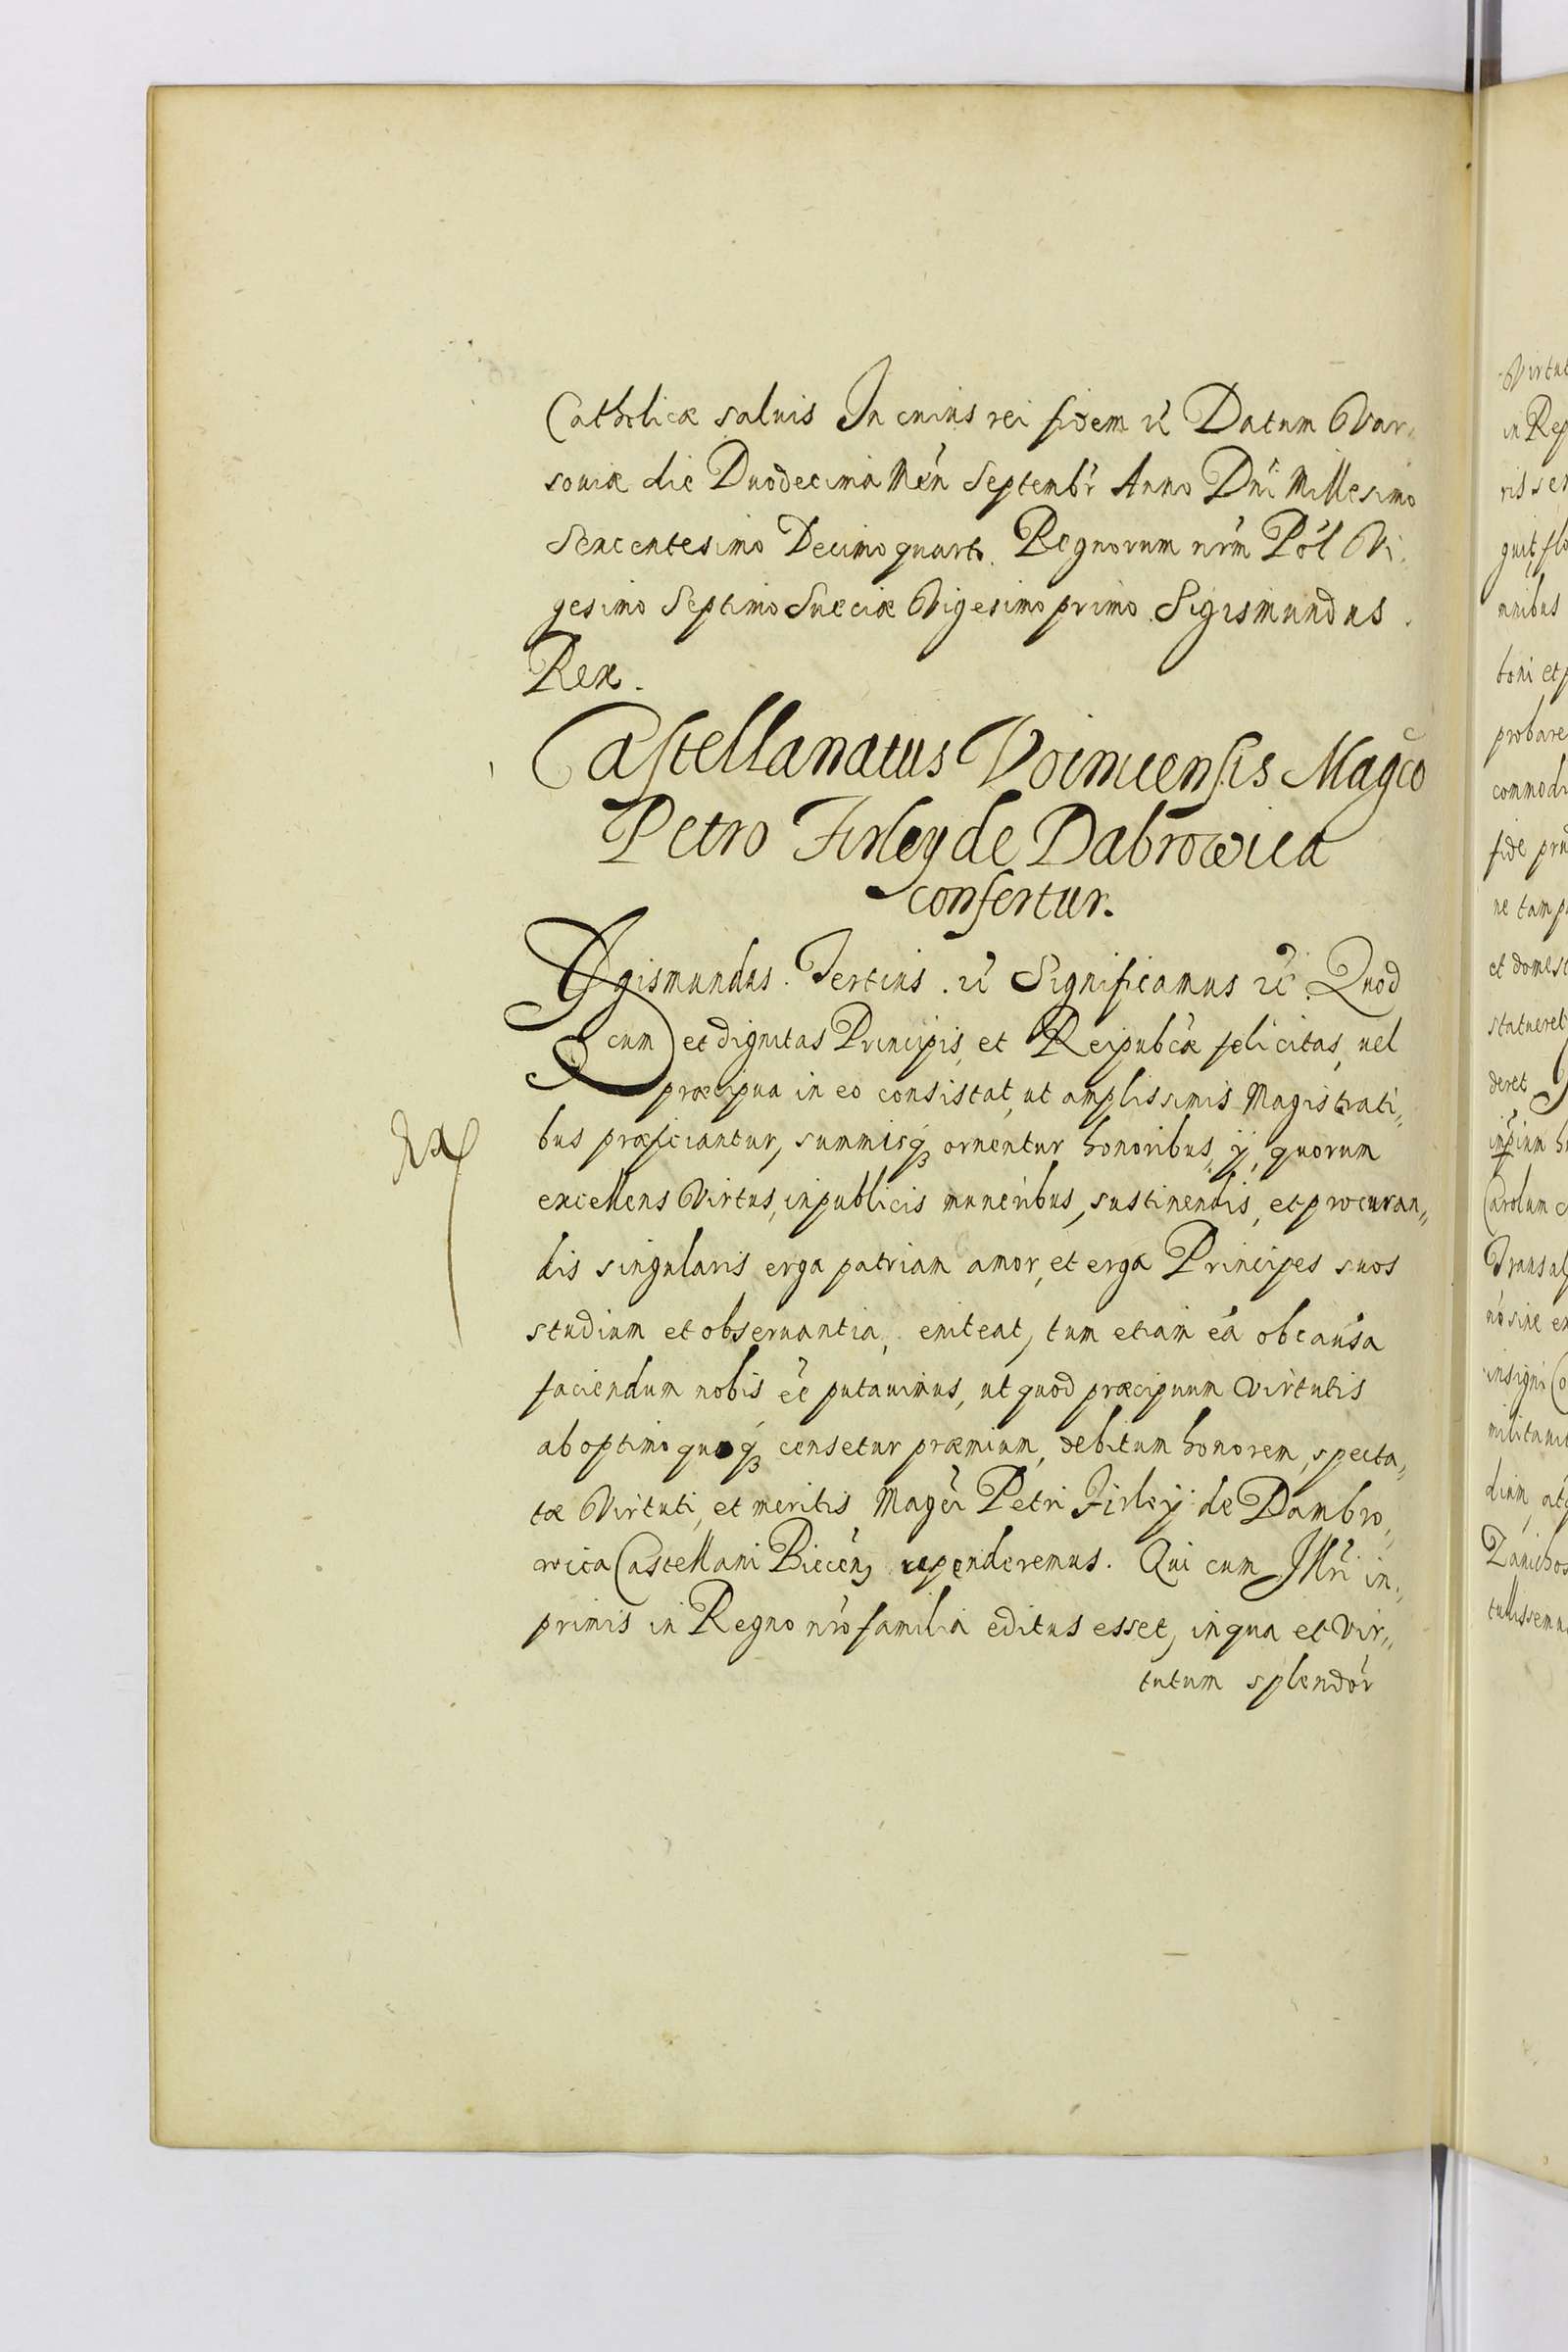 Catholicæ saluis In cuius rei fidem etc Datum Var„
souiæ die Duodecima Men̄ Septembr̄ Anno Dn̄i Millesimo
Sexcentesimo Decimo quarto. Regnorum nr̄m Pol̄ Vi„
gesimo Septimo Sueciæ Vigesimo primo. Sigismundus.
Rex.
Castellanatus Voinicensis Magco
Petro Firley de Dabrowica
confertur.
Sigismundus. Tertius. etc Significamus etc. Quod
cum et dignitas Principis, et Reipubc̄æ felicitas, uel
præcipua in eo consistat, ut amplissimis Magistrati„
bus præficiantur, summisq₃ ornentur honoribus, ij, quorum
excellens Virtus, in publicis muneribus, sustinendis, et procuran„
dis singularis erga patriam amor, et erga Principes suos
studium et obseruantia, eniteat, tum etiam ea ob causa
faciendum nobis ēe putauimus, ut quod præcipuum Virtutis
ab optimo quoq₃ censetur præmium, debitum honorem, specta„
tæ Virtuti, et meritis Magcī Petri Firleÿ de Dambro„
wica Castellani Biecen̄, rependeremus. Qui cum Illrī in„
primis in Regno nr̄o familia editus esset, in qua et Vir„
tutum splendor
Virtut
in Rep
ris ser
guit, flo
nnibus
boni et p
probare
commodi
fide pru
ne tam p
et domest
statueret
deret
Carolum
Transal
insigni Co
militaui
dium, atq
tulissemu